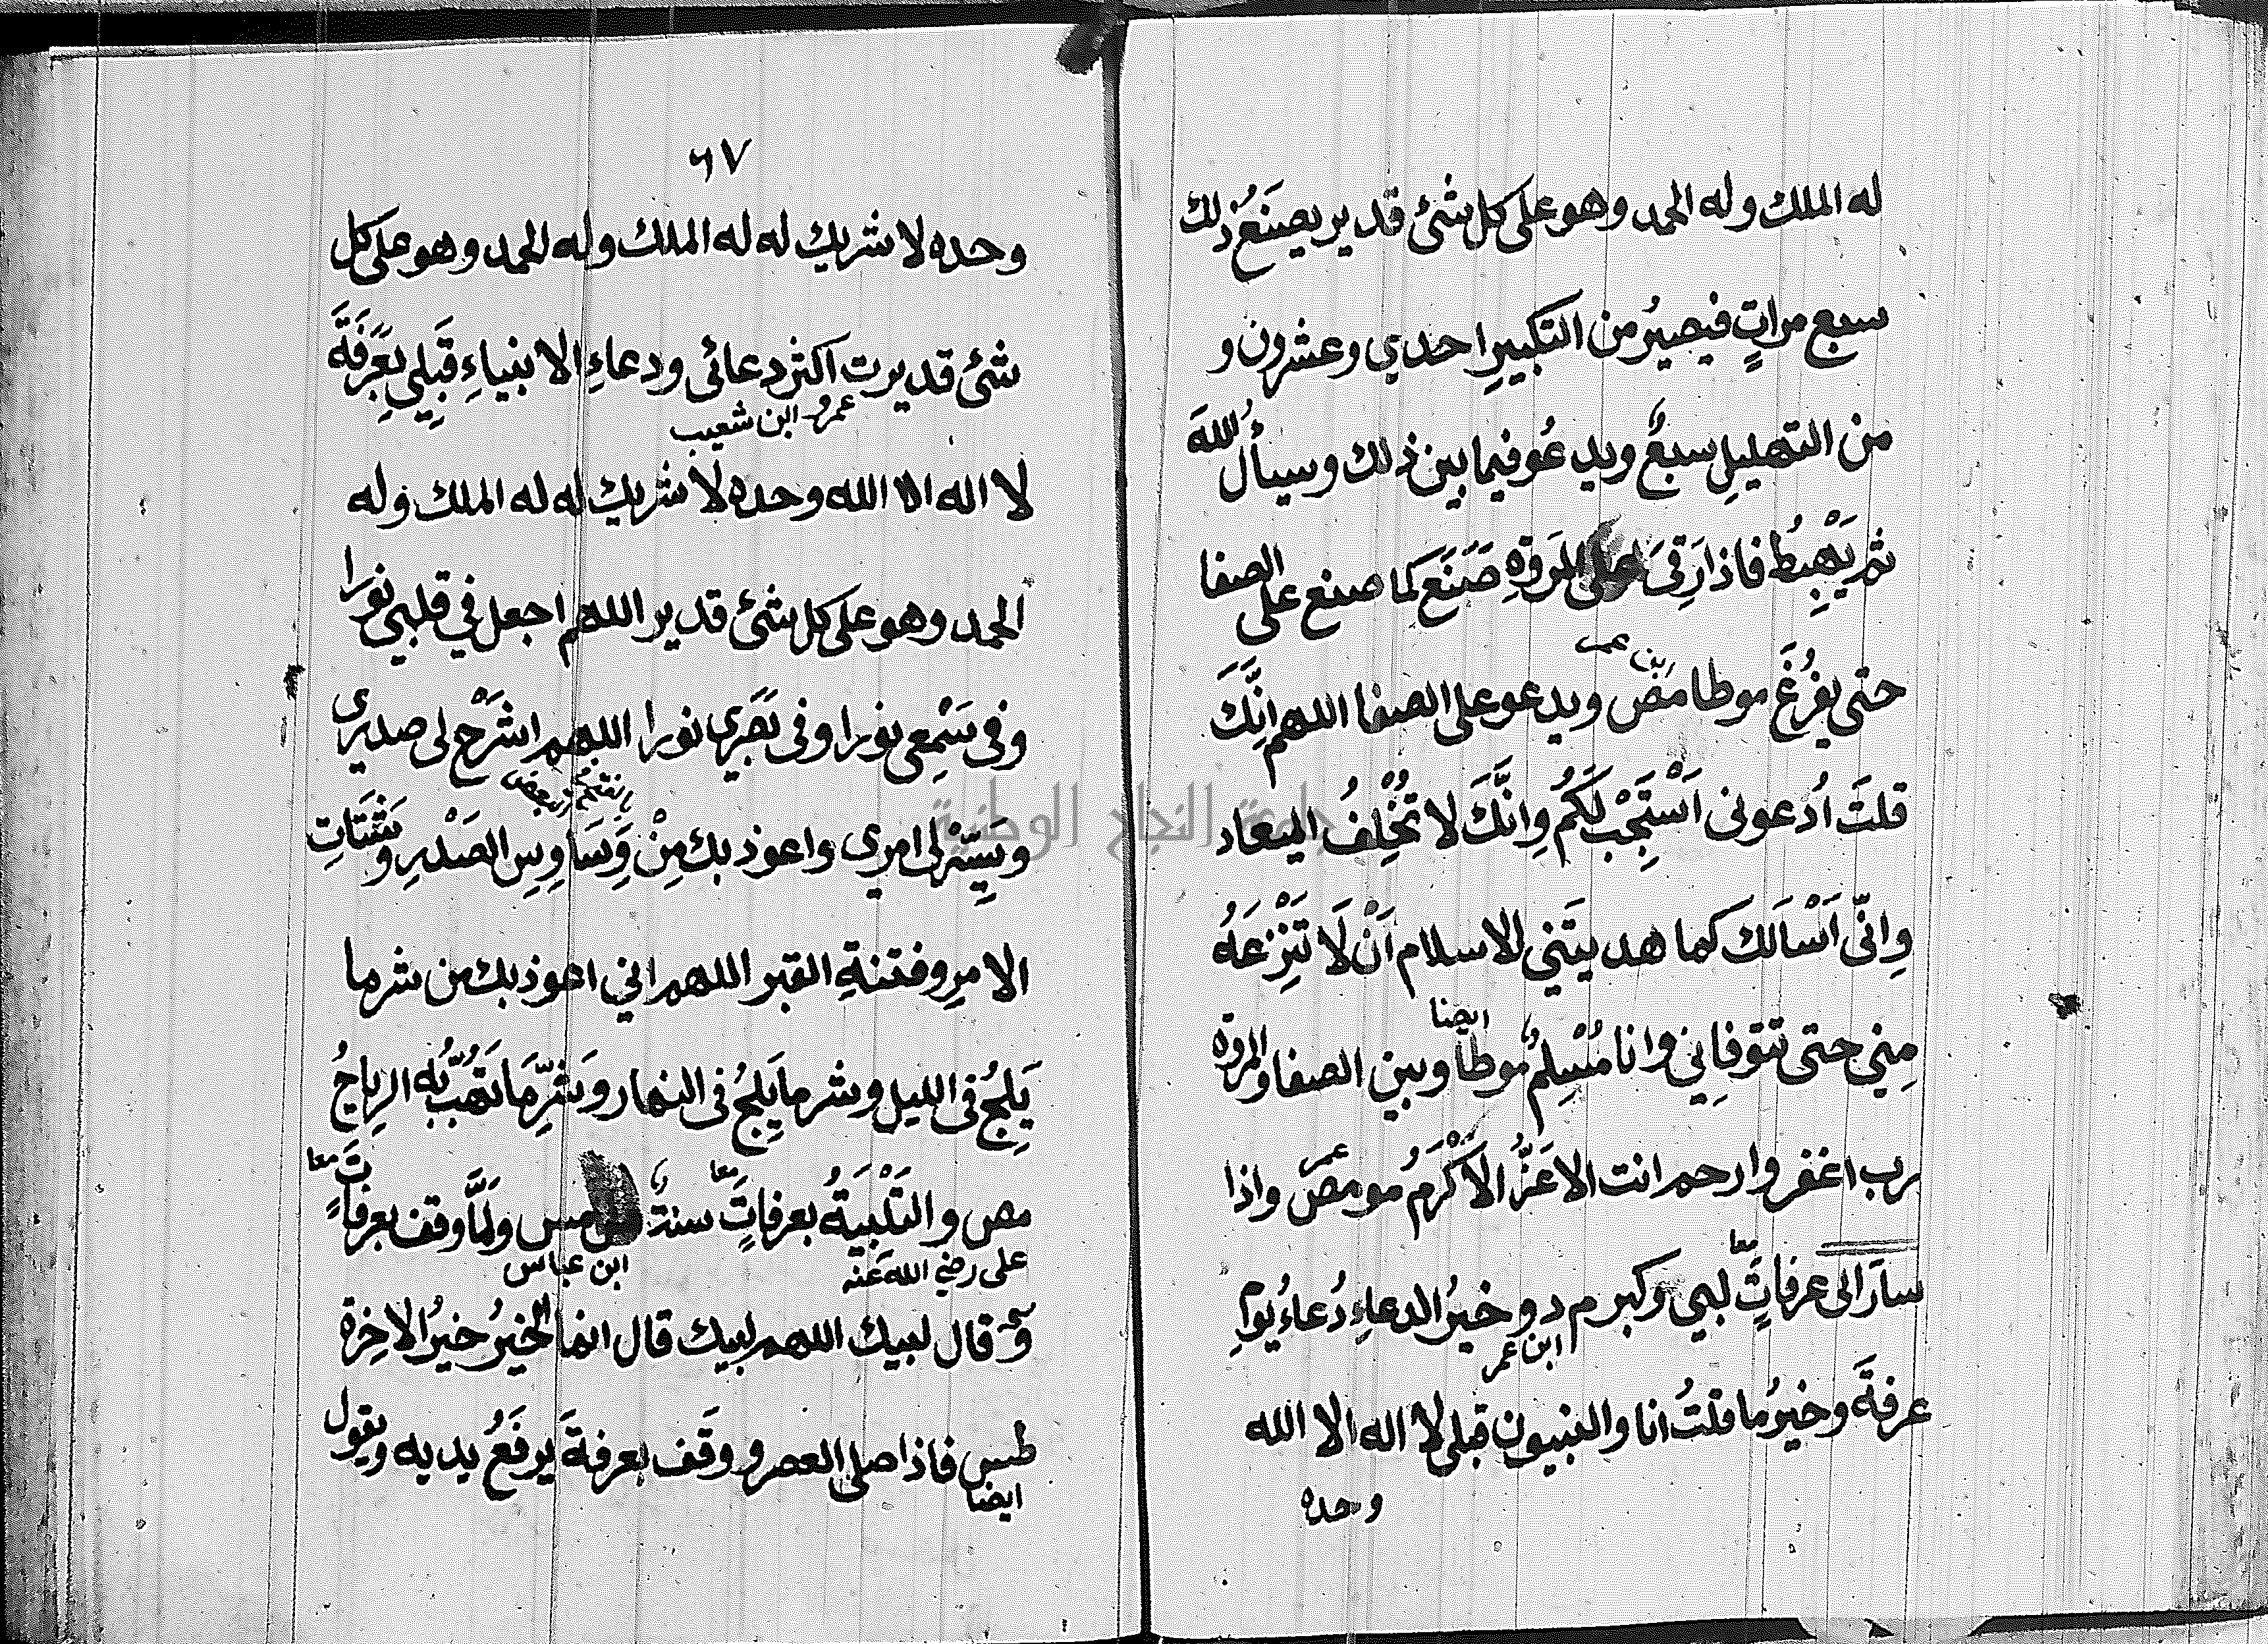 له الملك وله الحمد وهو على كل شئ قدير يصنَعُ ذلك
سبع مراتٍ فيصيرُ من التكبيرِ احدي وعشرون و
من التهليلِ سبعٌ ويدعُو فيما بين ذلك ويسأل اللهَ
ثم يَهْبِطُ فاذا رَقِىَ على المَروَةِ صَنَعَ كما صنع على الصفا
حتى يفرُغَ موطا مَصْ ويدعو على الصفا اللهم اِنَّكَ
ابن عمر
قلتَ اُدعونى اَسْتَجِبْ لَكُم وِانَّكَ لا تُخْلِفُ الميعاد
وِانّى اَسْاَلك كما هديتَني للاسلام اَنْ لَا تَنْزِعَهُ
مِنِي حتى تتوفاني وانا مُسْلِمٌ موطا وبين الصفا والمروة
ايضا
رب اغفر وارحم انت الاعَزُّ الاَكْرَمُ مو مص واذا
عمر
سارَ الى عرفاتٍَ لبي وكبر م د و خيرُ الدعاءِ دُعاءُ يومِ
معا
ابن عمر
عرفةَ وخيرُ ما قلتُ انا والنبيون قبلى لا اله الا الله
وحده
٦٧
وحده لا شريك له له الملك وله الحمد وهو على كل
شئ قدير ت اكثر دعائى ودعاءِ الانبياءِ قَبلِي بِعَرَفَةَ
عمرو ابن شعيب
لا اله الا الله وحده لا شريك له له الملك وله
الحمد وهو على كل شئ قدير اللهم اجعل في قلبي نورا
وفى سَمْعِى نورا وفى بَصَرِي نورا اللهم اشرَحْ لى صدري
ويَسِّرْ لى امري واعوذ بك مِنْ وَِسَاوِسِ الصَدْرِ وشَتَاتِ
الامرِ وفتنةِ القبر اللهم اني اعوذ بك من شر ما
يَلِجُ فى الليل وشر ما يَلِجُ فى النهار وشَرِّ مَا تَهُبُّ به الرياحُ
مص والتَلْبِيَةُ بعرفاتٍَ سنةٌ س مس ولَمَّا وقف بعرفاتٍَ
معا معا
على رضي الله عنه ابن عباس
وقال لبيك اللهم لبيك قال انما الخيرُ خيرُ الاخِرة
طس فاذا صلى العصر ووَقَف بعرفةَ يرفَعُ يديه ويقول
ايضا
جامعة النجاح الوطنية